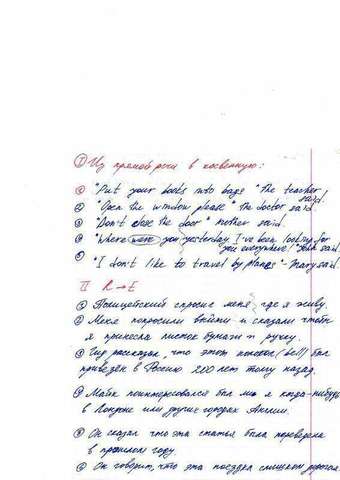 ① Из прямой речи в косвенную:
① "Put your books into bags" The teacher said!
② "Open the window please" the doctor said.
③ "Don't close the door" mother said.
④ "Where were you yesterday I've been looking for you everywhere!" John said.
⑤ "I don't like to travel by planes" - Mary said.
II R→E
① Полицейский спросил меня, где я живу.
② Меня попросили войти и сказали чтобы
я принесла листок бумаги и ручку.
③ Гид рассказал, что этот колокол (bell) был
привезён в Россию 200 лет тому назад.
④ Майк поинтересовался был ли я когда-нибудь
в Лондоне или других городах Англии.
⑤ Он сказал что эта статья была переведена
в прошлом году.
⑥ Он говорит, что эта поездка слишком дорогая.